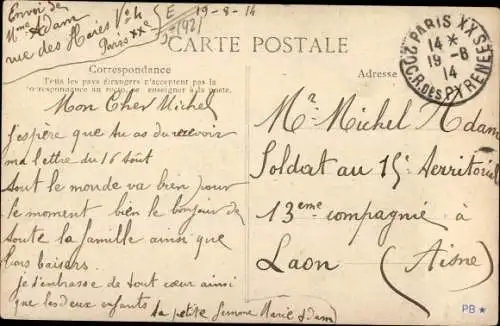 Envoi de
Mme Adam
rue des Haies No 4
Paris XXe
E 19-8-14
CARTE POSTALE
Correspondance
Tous les pays étrangers n'acceptent pas la
correspondance au recto, se renseigner à la poste.
Adresse
PARIS XX
14 *
19 -8
14
R. DES PYRENEES
Mon Cher Michel
J'espère que tu as du recevoir
ma lettre du 16 Août
tout le monde va bien pour
le moment bien le bonjour de
toute la famille ainsi que
leurs baisers.
je t'embrasse de tout cœur ainsi
que les deux enfants ta petite femme Marie Adam
Mr Michel Adam
Soldat au 15e Territorial
13eme compagnie à
Laon (Aisne)
PB